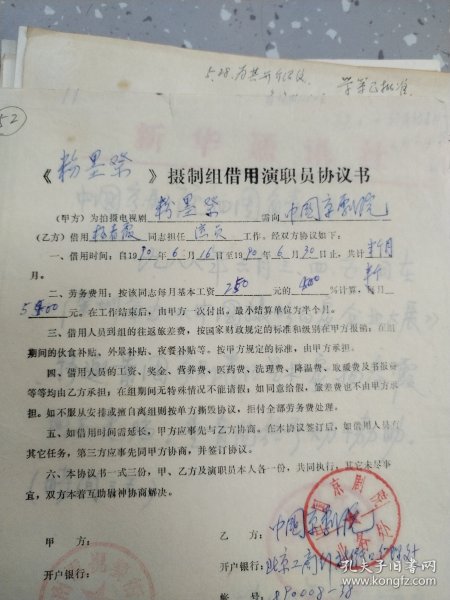 5.28.
学第已批准
52
《粉墨祭》摄制组借用演职员协议书
（甲方）为拍摄电视剧 粉墨祭 需向 中国京剧院
（乙方）借用 杨春霞 同志担任 演员 工作。经双方协议如下：
一、借用时间：自1990年6月16日至1990年6月30日止，共计半个
月。
二、劳务费用：按该同志每月基本工资 250 元的 %计算，每月
元。在工作结束后，由甲方一次付出。最小结算单位为半个月。
三、借用人员到组的往返旅差费，按国家财政规定的标准和级别在甲方报销；在组
期间的伙食补贴、外景补贴、夜餐补贴等。按甲方规定的标准，由甲方承担。
四、借用人员的工资、奖金、营养费、医药费、洗理费、降温费、取暖费及书报费
等等均由乙方承担；在组期间无特殊情况不能请假；如同意给假，旅差费也不由甲方承
担。如不服从安排或擅自离组则按单方撕毁协议，拒付全部劳务费处理。
五、如借用时间需延长，甲方应事先与乙方协商。在本协议签订后，如借用人员有
其它任务，第三方应事先同甲方协商，并签订协议。
六、本协议书一式三份，甲、乙方及演职员本人各一份，共同执行，其它未尽事
宜，双方本着互助精神协商解决。
甲 方： 乙 方：中国京剧院
开户银行： 开户银行：北京工商
账 号：890008-38
孔夫子旧书网